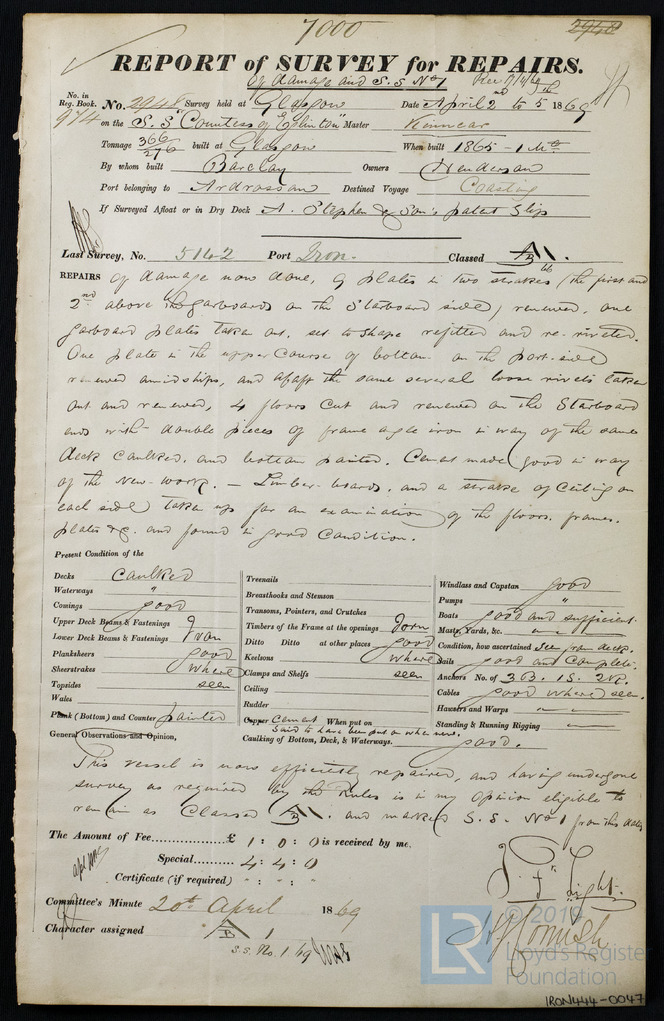 7000
2948
REPORT of SURVEY for REPAIRS.
of damage and S.S No 1
No. in
Reg. Book.
974
No. 2948 Survey held at Glasgow Date April 2nd to 5th 1869
on the S.S "Countess of Eglinton" Master Kinnear
Tonnage 366/276 built at Glasgow When built 1865 - 1 Mo
By whom built Barclay Owners Henderson
Port belonging to Ardrossan Destined Voyage Coasting
If Surveyed Afloat or in Dry Dock A. Stephen & Son's patent Slip
Last Survey, No. 5142 Port Iron. Classed A 1.
B
REPAIRS of damage now done, 9 plates in two strakes (the first and
2nd above the garboards on the Starboard side) renewed, one
garboard plates taken out, set to shape refitted and re-riveted.
One plate in the upper Course of bottom on the port side
renewed amidships, and abaft the same several loose rivets taken
out and renewed, 4 floors cut and renewed on the Starboard
ends with double pieces of frame angle iron in way of the same
deck caulked, and bottom painted. Cement made good in way
of the new work. - Limber boards, and a strake of Ceiling on
each side taken up for an examination of the floors, frames.
plates &c. and found in good Condition.
Present Condition of the
Decks caulked
Waterways "
Comings good
Upper Deck Beams & Fastenings } Iron
Lower Deck Beams & Fastenings
Planksheers good
Sheerstrakes where
Topsides seen
Wales
Plank (Bottom) and Counter painted
General Observations and Opinion,
Treenails
Breasthooks and Stemson
Transoms, Pointers, and Crutches
Timbers of the Frame at the openings Iron
Ditto Ditto at other places good
Keelsons where
Clamps and Shelfs seen
Ceiling
Rudder
Copper Cement When put on
Said to have been put on when new.
Caulking of Bottom, Deck, & Waterways. good.
Windlass and Capstan good
Pumps "
Boats good and sufficient.
Masts, Yards, &c.
Condition, how ascertained See from deck.
Sails good and Complete.
Anchors No. of 3 B. 1 S. 2 K.
Cables good where seen.
Hawsers and Warps
Standing & Running Rigging
This vessel is now efficiently repaired, and having undergone
survey as required by the Rules is in my opinion eligible to
remain as Classed A 1. and marked S.S. No 1 from this date
B
The Amount of Fee......£ 1 : 0 : 0 is received by me,
Special......... 4 : 4 : 0
Certificate (if required)
Committee's Minute 20th April 1869
Character assigned A 1
B
S.S. No. 1 69
Light.
© 2014
LR
Lloyd's Register
Foundation.
IRON444-0047